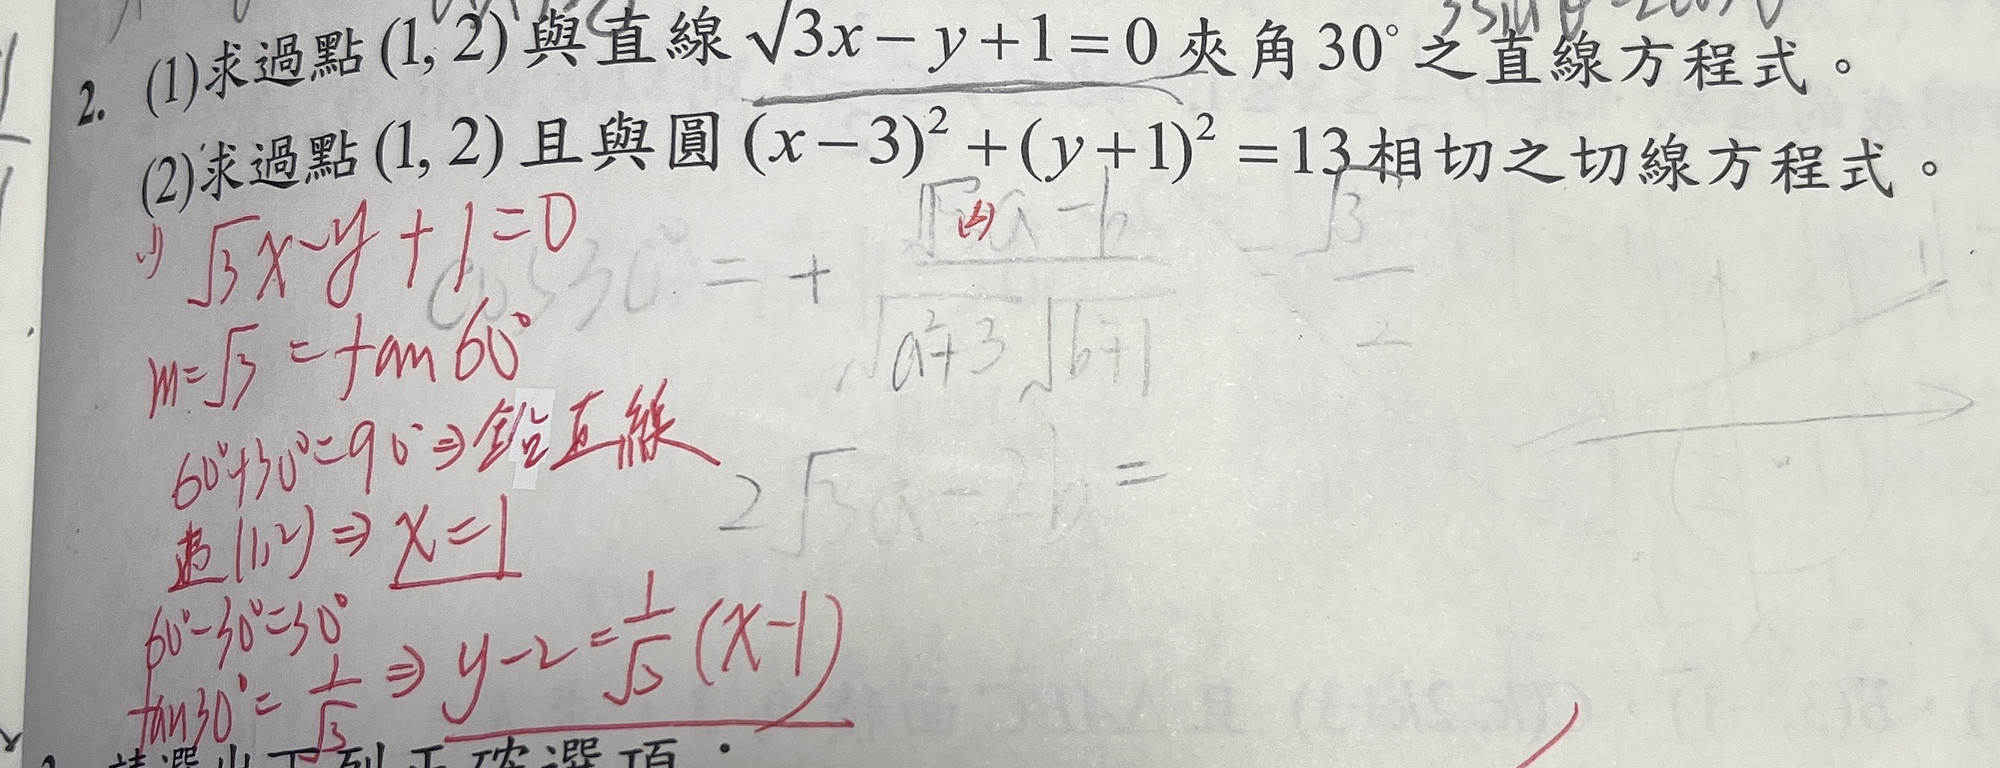 2. (1)求過點(1, 2)與直線√3x－y＋1＝0夾角30°之直線方程式。
(2)求過點(1, 2)且與圓(x－3)²＋(y＋1)²＝13相切之切線方程式。
(1) √3x-y+1=0
m=√3=tan60°
60°+30°=90°⇒鉛直線
過(1,2)⇒x=1
60°-30°=30°
tan30°=1/√3⇒y-2=1/√3(x-1)
(2)
cos30°=+ (√3a-b)/(√a²+3 √b+1) = √3/2
2√3a-2b=